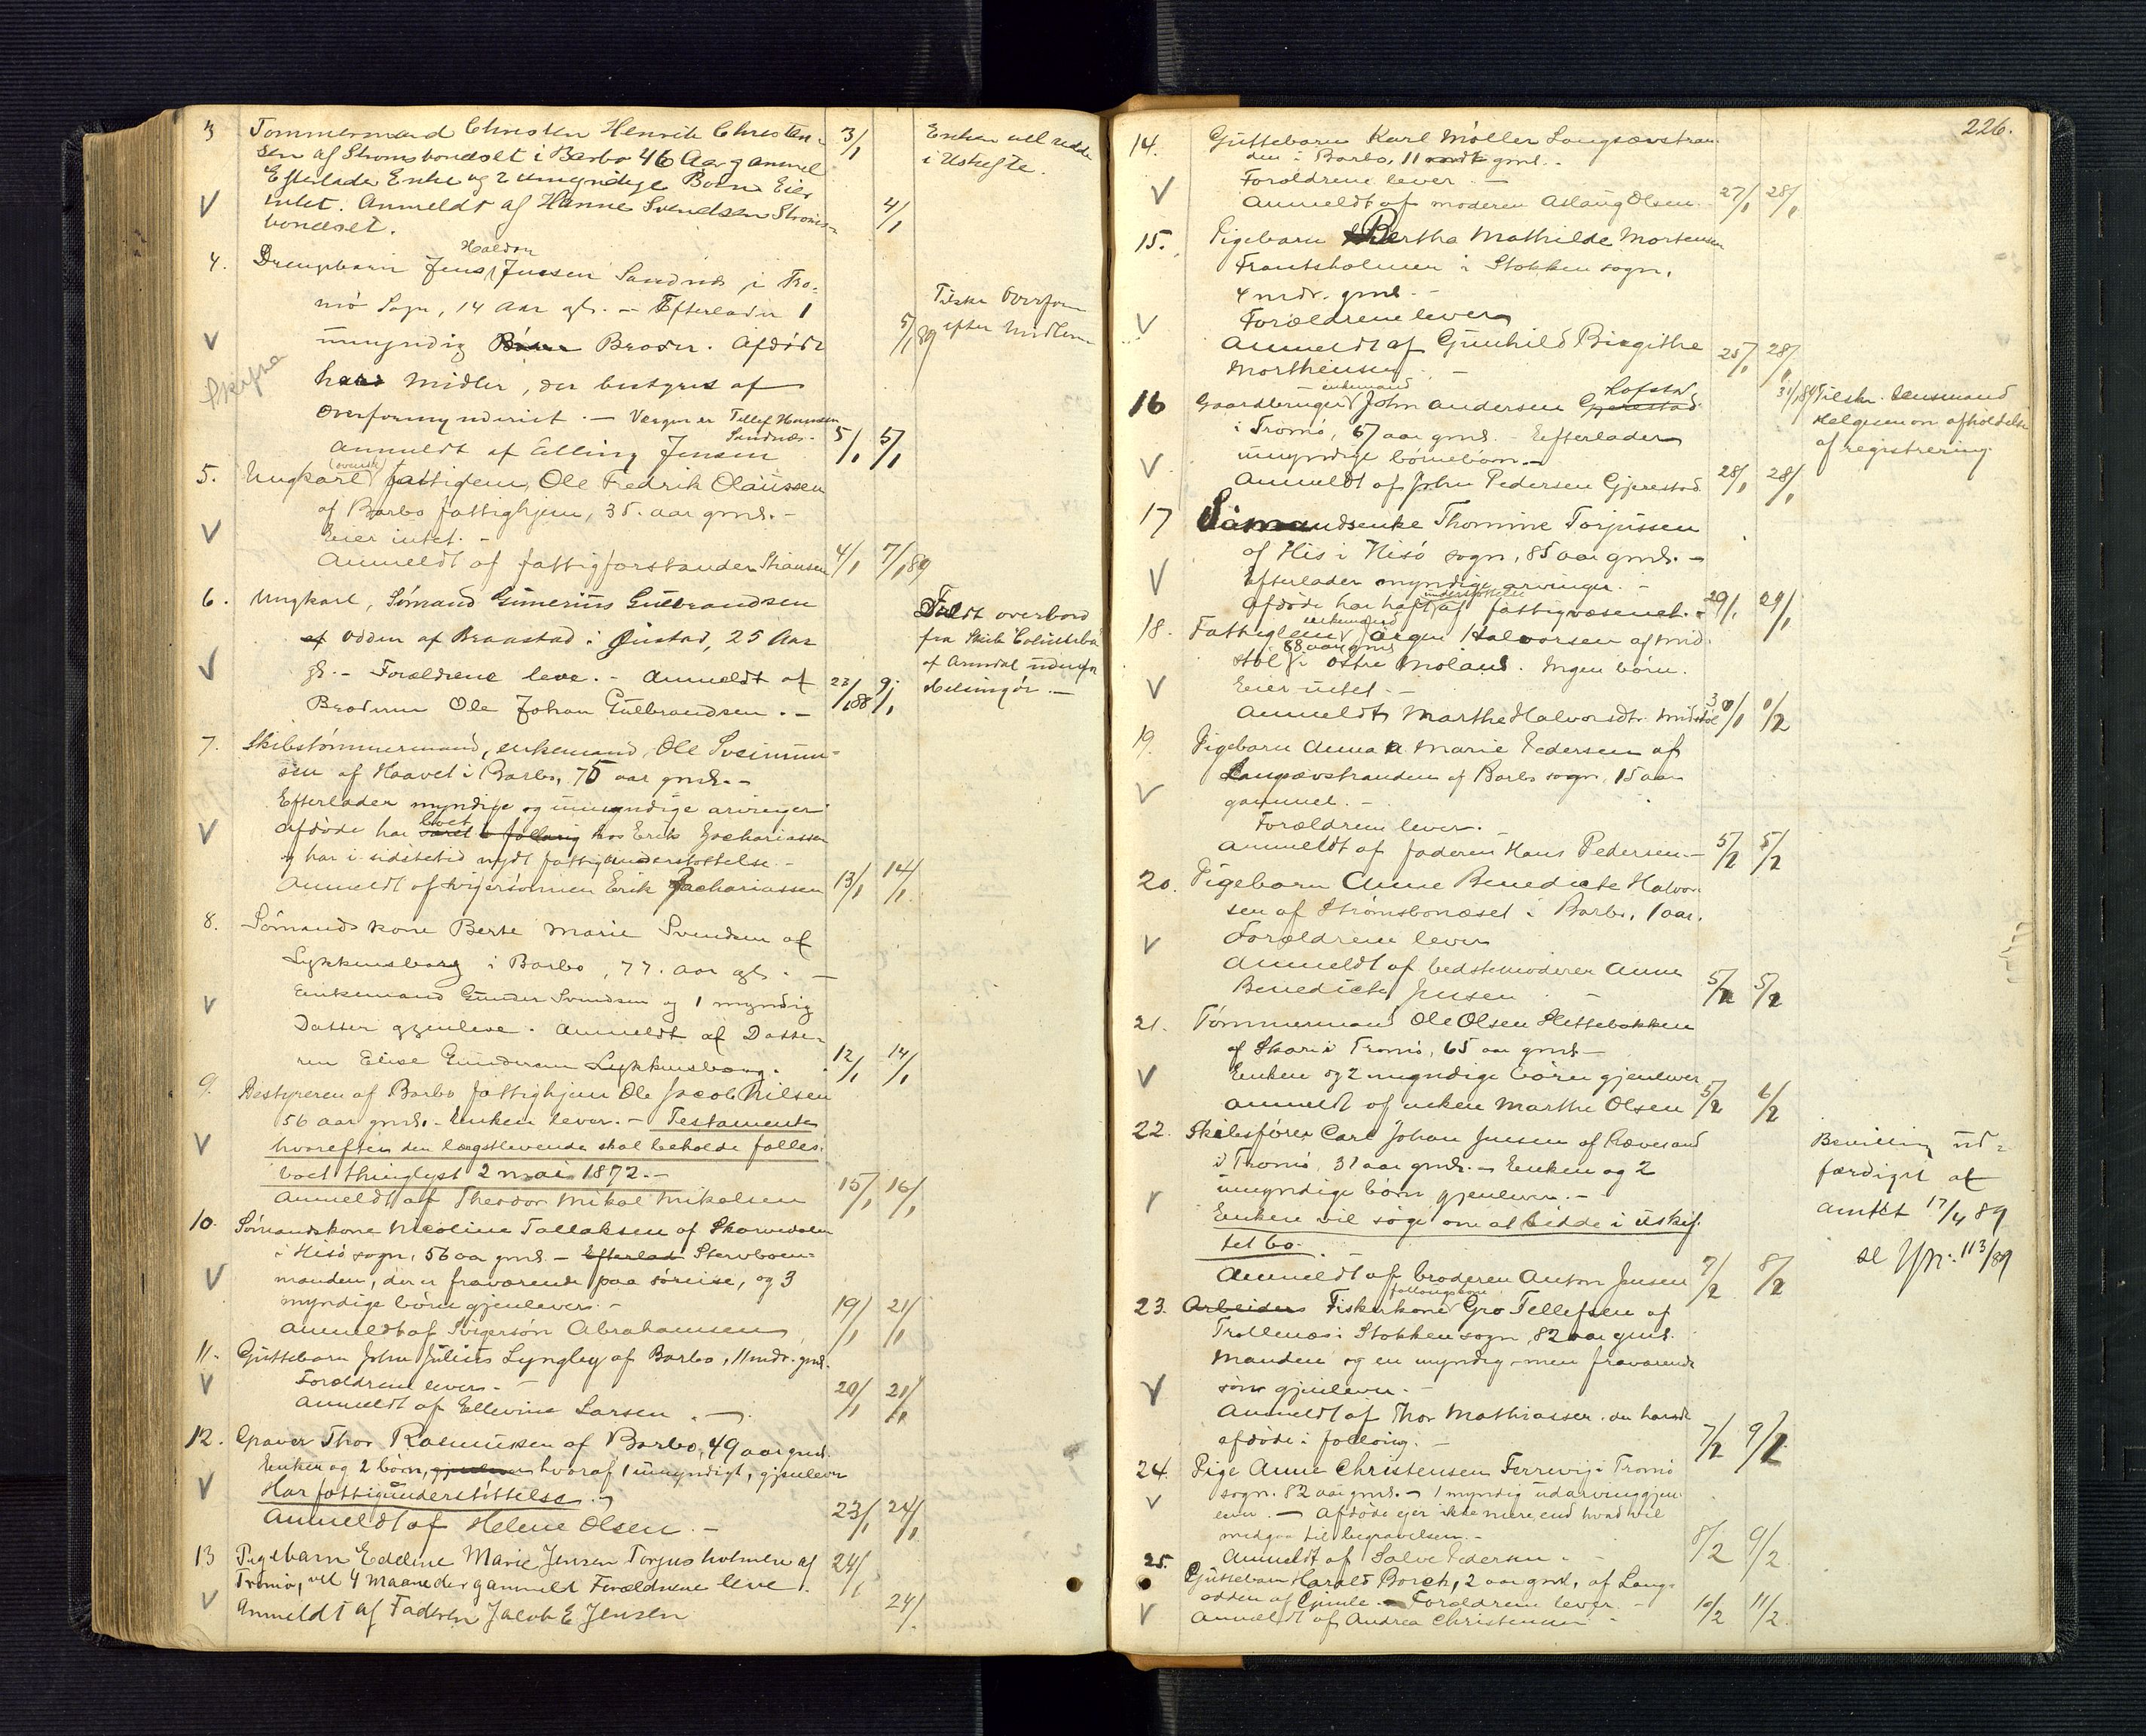 3 Tømmermand Christen Henrik Christen- 3/1 Enken vil sidde
sen af Strømsbonæset i Barbo 46 Aar gammel i Uskifte.
Efterlader Enke og 2 umyndige Børn Eier
intet. Anmeldt af Hanne Svendsen Strøms- 4/1
bonæset.
Haldor
4. Drengebarn Jens Jensen Sandnæs i Tro-
mø Sogn, 14 Aar gl. - Efterlader 1
umyndig Broder. Afdøde 5/1 89
havde Midler, der bestyres af
Skifte
Overformynderiet. - Verger er Tellef Hansen
Sandnæs.
Anmeldt af Elling Jensen 5/1 5/1
5. Ungkarl (svensk) fattiglem, Ole Fredrik Olaussen
af Barbo fattighjem, 35. aar gml. -
Eier intet. -
Anmeldt af fattigforstander Stiansen 4/1 7/1 89
6. Ungkarl, Sømand Gunerius Gulbrandsen Faldt overbord
af Odden af Braastad i Øiestad, 25 Aar fra Skib Columbia
gl. - Forældrene leve. - Anmeldt af 23/1 88 9/1 af Arendal udenfor
Broderen Ole Johan Gulbrandsen. - Helsingør. -
7. Skibstømmermand, enkemand, Ole Sveinun-
sen af Haavet i Barbo, 75 aar gml. -
Efterlader myndige og umyndige arvinger
boet
Afdøde har været i follaug hos Erik Zachariassen
og har i sidstetid nydt fattigunderstøttelse. -
Anmeldt af svigersønnen Erik Zachariassen 13/1 14/1
8. Sømandskone Berte Marie Svendsen af
Lykkensborg i Barbo, 77. aar gl. -
Enkemand Gunder Svendsen og 1 myndig
Datter gjenleve. Anmeldt af Datte-
ren Elise Gundersen Lykkensborg. 12/1 14/1
9. Bestyreren af Barbo fattighjem Ole Jacob Nilsen
56 aar gml. - Enken lever. - Testamente
hvorefter den længstlevende skal beholde fælles-
boet thinglyst 2 mai 1872. -
Anmeldt af Theodor Mikal Mikalsen 15/1 16/1
10. Sømandskone Nicoline Tallaksen af Skarvedalen
i Hisø sogn, 56 aar gml. - Efterlad Stervboen-
manden, der er fraværende paa søreise, og 3
myndige børn gjenlever. -
Anmeldt af Svigersøn Abrahamsen 19/1 21/1
11. Guttebarn John Julius Lyngby af Barbo, 11 mdr. gml.
Forældrene lever. -
Anmeldt af Ellevine Larsen. - 20/1 21/1
12. Graver Thor Rasmussen af Barbo, 49 aar gml.
Enken og 2 børn, gjenlever hvoraf 1 umyndigt, gjenlever
Har fattigunderstøttelse. -
Anmeldt af Helene Olsen. - 23/1 24/1
13 Pigebarn Eddine Marie Jensen Torjusholmen af 24/1
Tromø, vel 4 Maaneder gammelt Forældrene leve.
Anmeldt af Faderen Jakob E Jensen 24/1
226.
14. Guttebarn Karl Møller Langsævstran-
den i Barbo, 11 mdr gml. -
Forældrene lever. -
Anmeldt af moderen Aslaug Olsen. 27/1 28/1
15. Pigebarn Bertha Mathilde Mortensen
Frantsholmen i Stokken sogn,
4 mdr. gml. -
Forældrene lever
Anmeldt af Gunhild Birgithe
Morthensen - 25/1 28/1
enkemand Hofstad 31/1 89 Tilskr. lensmand
16 Gaardbruger John Andersen Gjerestad Helgesen om afholdelse
i Tromø, 67 aar gml. - Efterlader af registrering.
umyndige børnebørn. -
Anmeldt af John Pedersen Gjerestad 28/1 28/1
17 Sømandsenke Thomine Torjussen
af His i Hisø sogn, 85 aar gml. -
Efterlader myndige arvinger. -
understøttelse
Afdøde har haft af fattigvæsenet. - 29/1 29/1
enkemand
18. Fattiglem Jørgen Halvorsen af Mid-
88 aar gml
støl i østre Moland. Ingen børn.
Eier intet. -
Anmeldt Marthe Halvorsdtr. Midstøl 30/1 1/2
19. Pigebarn Anna Marie Pedersen af
Langsævstranden af Barbo sogn, 15 aar
gammel. -
Forældrene lever. -
Anmeldt af faderen Hans Pedersen - 5/2 5/2
20. Pigebarn Anne Benedicte Halvor-
sen af Strømsbonæset i Barbo, 1 aar.
Forældrene lever
Anmeldt af bedstemoderen Anne
Benedicte Jensen. - 5/2 5/2
21. Tømmermand Ole Olsen Slettebakken
af Skare i Tromø, 65 aar gml -
Enken og 2 myndige børn gjenlever
Anmeldt af enken Marthe Olsen 5/2 6/2
22. Skibsfører Carl Johan Jensen af Rævesand Bevilling ud-
i Tromø, 31 aar gml. - Enken og 2 færdiget af
umyndige børn gjenlever. - amtet 17/4 89
Enken vil søge om at sidde i uskif-
tet bo. se Jpn: 113/89
Anmeldt af broderen Anton Jensen 7/2 8/2
23. Arbeider Fiskerkone Gro Tellefsen af
Trollenæs i Stokken sogn, 82 aar gml.
Manden og en myndig men fraværende
søn gjenlever. -
Anmeldt af Thor Mathiassen. der havde
afdøde i follaug. - 7/2 9/2
24. Pige Anne Christensen Færrevig i Tromø
sogn. 82 aar gml. - 1 myndig udarving gjen-
lever. - Afdøde ejer ikke mere, end hvad vil
medgaa til begravelsen. -
Anmeldt af Salve Pedersen. - 8/2 9/2
25. Guttebarn Harald Borch, 2 aar gml, af Lang-
odden af Gjenle. - Forældrene lever. -
Anmeldt af Andrea Christensen - 10/2 11/2